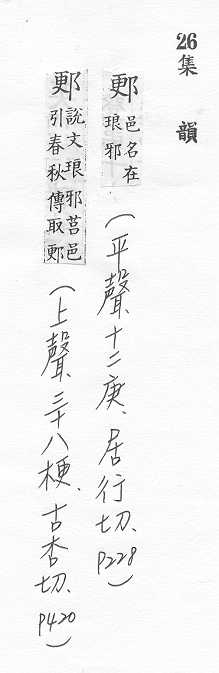 26集韻
郠邑名在琅邪(平聲、十二庚、居行切、P228)
郠說文琅邪莒邑引春秋傳取郠(上聲、三十八梗、古杏切、P420)